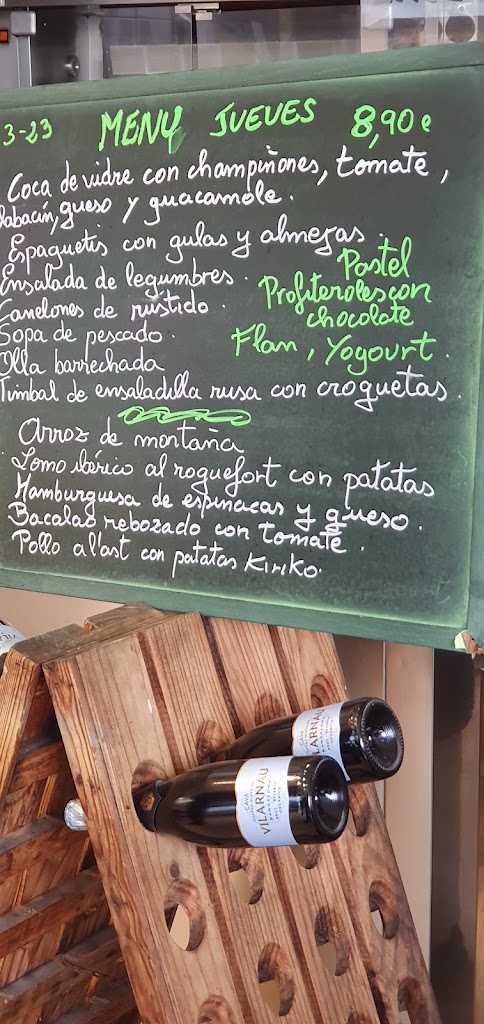 3-23 MENY JUEVES 8,90€
Coca de vidre con champiñones, tomate,
labacín, queso y guacamole.
Espaguetis con gulas y almejas.
Ensalada de legumbres.
Canelones de rustido.
Sopa de pescado.
Olla barrechada
Timbal de ensaladilla rusa con croquetas.
Pastel
Profiteroles con
chocolate
Flan, Yogourt.
Arroz de montaña
Lomo ibérico al roquefort con patatas
Hamburguesa de espinacas y queso.
Bacalao rebozado con tomate.
Pollo a l'ast con patatas Kiriko.
VILARNAU
CAVA
VILARNAU